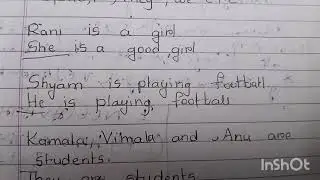 they, we
Rani is a girl
She is a good girl
Shyam is playing football
He is playing football
Kamala, Vimala and Anu are
students.
They are students
InShOt